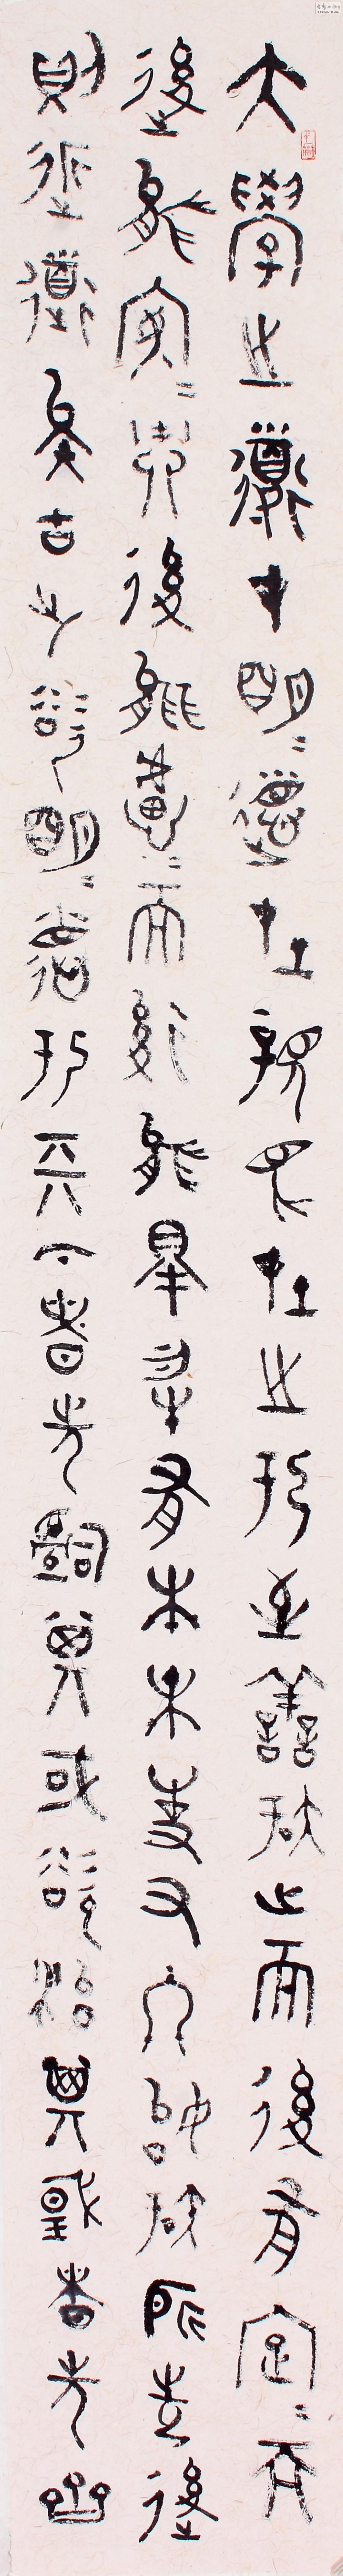 大學之道在明=德在親民在止於至善知止而後有定=而
後能安=而後能慮=而後能得物有本末事有終始知所先後
則近道矣古之欲明=德於天下者先治其國欲治其國者先齊